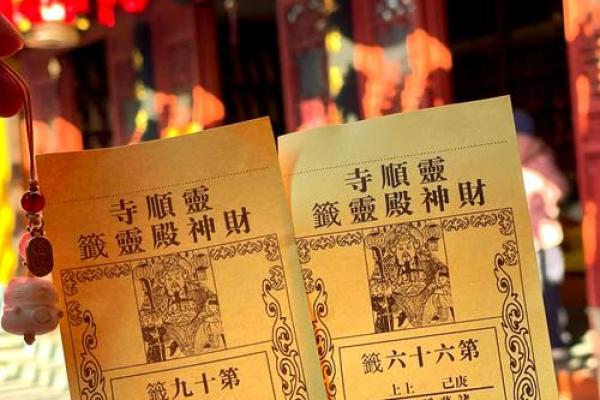 靈順寺
財神殿靈籤
第十九籤
靈順寺
財神殿靈籤
第六十六籤
上上